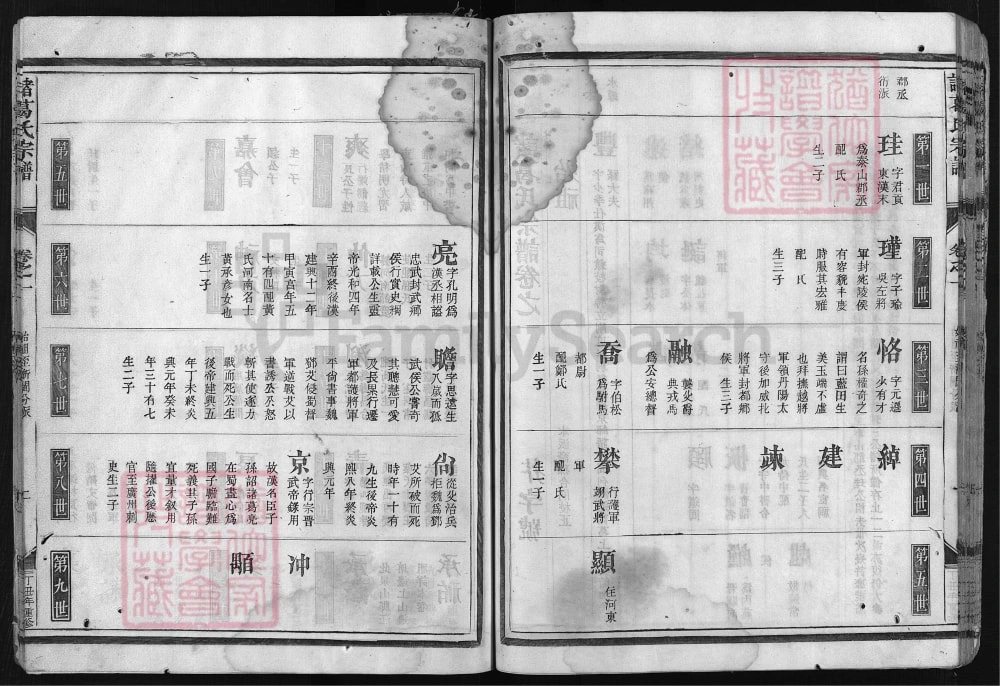 郡丞
衍派
第一世
珪
字君貢
東漢末
爲泰山郡丞
配 氏
生二子
第二世
瑾
字子瑜
吳左將
軍封宛陵侯
有容貌丰度
時服其宏雅
配 氏
生三子
第三世
恪
字元遜
少有才
名孫權奇之
謂曰藍田生
美玉端不虛
也拜撫越將
軍領丹陽太
守後加威北
將軍封都鄉
侯 生三子
融
襲父爵
典戎馬
爲公安總督
喬
字伯松
爲駙馬
都尉
配鄒氏
生一子
第四世
綽
建
竦
攀
行護軍
翊武將
軍
配 氏
生一子
第五世
顯
住河東
諸葛氏宗譜
卷之一
第五世
第六世
亮
字孔明爲
漢丞相諡
忠武封武鄉
侯行實史揭
詳載公生靈
帝光和四年
辛酉終後漢
建興十二年
甲寅享年五
十有四配黃
氏河南名士
黃承彥女也
生一子
第七世
瞻
字思遠生
八歲而孤
武侯公嘗奇
其聰慧可愛
及長累行遷
軍都護將軍
平尙書事魏
鄧艾侵蜀督
軍逆戰艾以
書誘公公怒
斬其使遂力
戰而死公生
後帝建興五
年丁未終炎
興元年癸未
年三十有七
生二子
第八世
尙
從父治兵
出拒魏爲鄧
艾所破而死
時年一十有
九生後帝炎
熙八年終炎
興元年
京
字行宗晉
武帝錄用
故漢名臣子
孫詔諸葛亮
在蜀盡心爲
國子瞻臨難
死義其子孫
宜量才敘用
隨擢公後歷
官至廣州刺
史生二子
第九世
沖
顯
丁丑年重修
FamilySearch